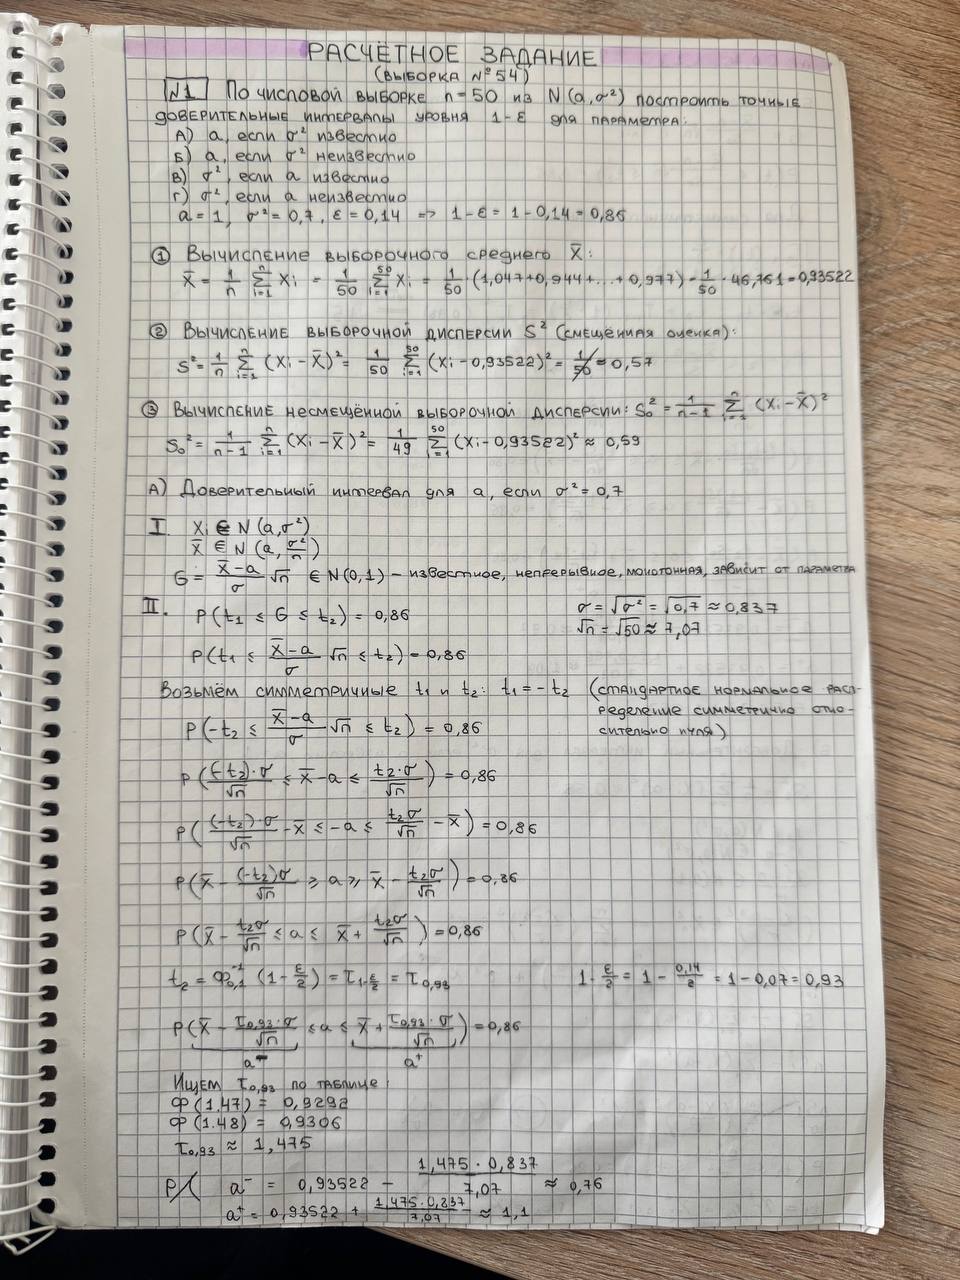 РАСЧЁТНОЕ ЗАДАНИЕ
(ВЫБОРКА №54)
№1 По числовой выборке n=50 из N(a,σ²) построить точные
доверительные интервалы уровня 1-ε для параметра:
А) a, если σ² известно
Б) a, если σ² неизвестно
В) σ², если a известно
Г) σ², если a неизвестно
a=1, σ²=0,7, ε=0,14 => 1-ε = 1-0,14=0,86
① Вычисление выборочного среднего X̄:
X̄ = 1/n ∑_{i=1}^{n} Xi = 1/50 ∑_{i=1}^{50} Xi = 1/50 · (1,047+0,944+...+0,977) = 1/50 · 46,761=0,93522
② Вычисление выборочной дисперсии S² (смещённая оценка):
S² = 1/n ∑_{i=1}^{n} (Xi - X̄)² = 1/50 ∑_{i=1}^{50} (Xi - 0,93522)² = 0,57
③ Вычисление несмещённой выборочной дисперсии: S₀² = 1/(n-1) ∑_{i=1}^{n} (Xi - X̄)²
S₀² = 1/(n-1) ∑_{i=1}^{n} (Xi - X̄)² = 1/49 ∑_{i=1}^{50} (Xi - 0,93522)² ≈ 0,59
А) Доверительный интервал для a, если σ²=0,7
I. Xi ∈ N(a,σ²)
X̄ ∈ N(a, σ²/n)
G = (X̄-a)/σ √n ∈ N(0,1) – известное, непрерывное, монотонная, зависит от параметра
II. P(t₁ ≤ G ≤ t₂) = 0,86
σ = √σ² = √0,7 ≈ 0,837
√n = √50 ≈ 7,07
P(t₁ ≤ (X̄-a)/σ √n ≤ t₂) = 0,86
Возьмём симметричные t₁ и t₂: t₁ = -t₂ (стандартное нормальное расп-
ределение симметрично отно-
сительно нуля)
P(-t₂ ≤ (X̄-a)/σ √n ≤ t₂) = 0,86
P((-t₂)·σ/√n ≤ X̄-a ≤ t₂·σ/√n) = 0,86
P((-t₂)·σ/√n - X̄ ≤ -a ≤ t₂σ/√n - X̄) = 0,86
P(X̄ - (-t₂)σ/√n ≥ a ≥ X̄ - t₂σ/√n) = 0,86
P(X̄ - t₂σ/√n ≤ a ≤ X̄ + t₂σ/√n) = 0,86
t₂ = Φ⁻¹₀,₁ (1-ε/2) = τ_{1-ε/2} = τ_{0,93} 1-ε/2 = 1 - 0,14/2 = 1-0,07=0,93
P(X̄ - τ_{0,93}·σ/√n ≤ a ≤ X̄ + τ_{0,93}·σ/√n) = 0,86
a⁻ a⁺
Ищем τ_{0,93} по таблице:
Φ(1.47) = 0,9292
Φ(1.48) = 0,9306
τ_{0,93} ≈ 1,475
P( a⁻ = 0,93522 - 1,475·0,837/7,07 ≈ 0,76
a⁺ = 0,93522 + 1,475·0,837/7,07 ≈ 1,1